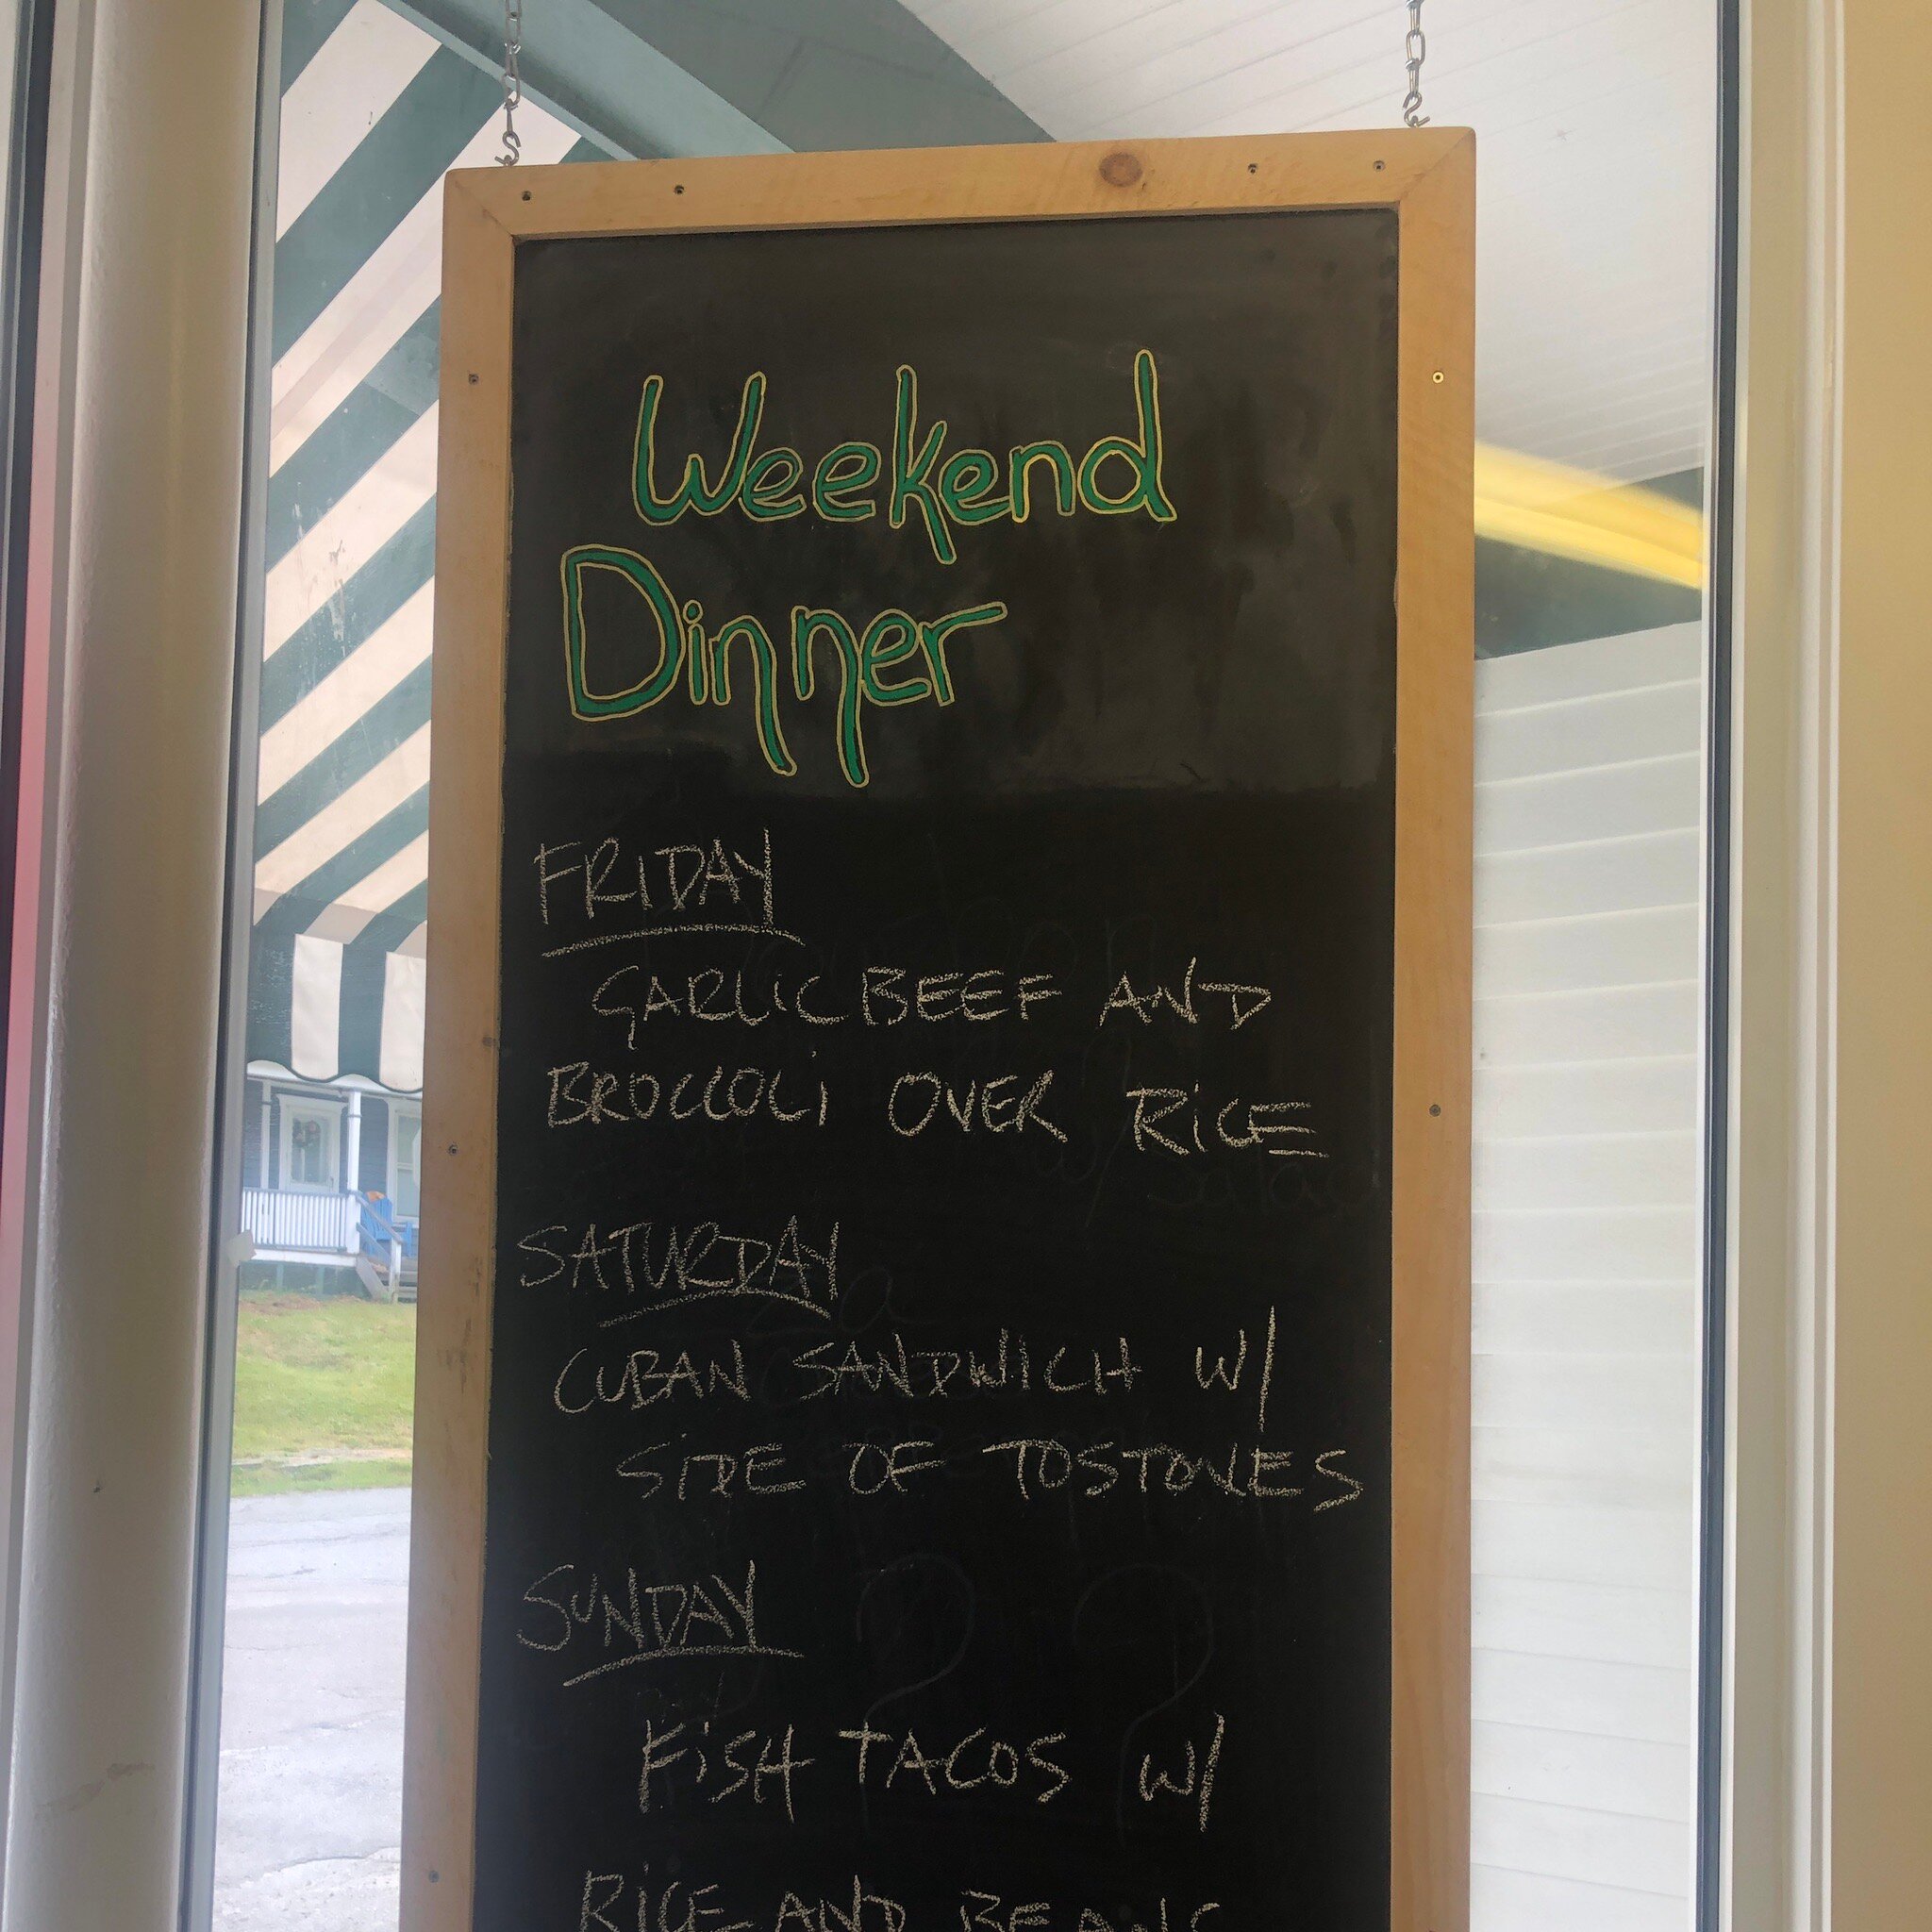 Weekend
Dinner
FRIDAY
GARLIC BEEF AND
BROCCOLI OVER RICE
SATURDAY
CUBAN SANDWICH W/
SIDE OF TOSTONES
SUNDAY
FISH TACOS W/
RICE AND BEANS